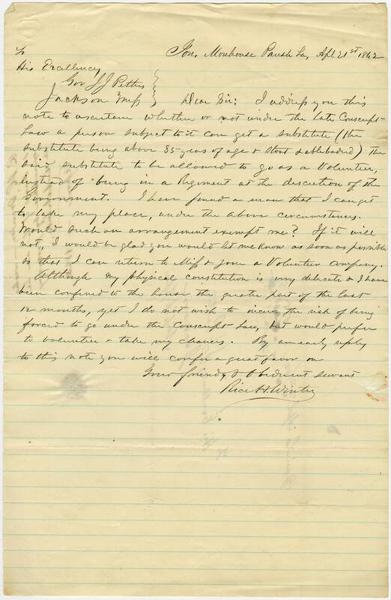 To
Jno, Morehouse Parish La, Apl 21st 1862
His Excellency
Gov J J Pettus
Jackson Miss
Dear Sir: I address you this
note to ascertain whether or not under the late Conscript
Law a person subject to it can get a substitute (the
substitute being above 35 years of age & stout & ablebodied) The
said substitute to be allowed to go as a Volunteer,
instead of being in a Regiment at the discretion of the
Government. I have found a man that I can get
to take my place, under the above circumstances.
Would such an arrangement exempt me? If it will
not, I would be glad you would let me know as soon as possible
so that I can return to Miss & join a Volunteer company.
Although my physical constitution is very delicate & I have
been confined to the house the greater part of the last
months, yet I do not wish to incur the risk of being
forced to go under the Conscript Law, but would prefer
to volunteer & take my chances. By an early reply
to this note you will confer a great favor on
Your friend & obedient servant
Rice H. Winter